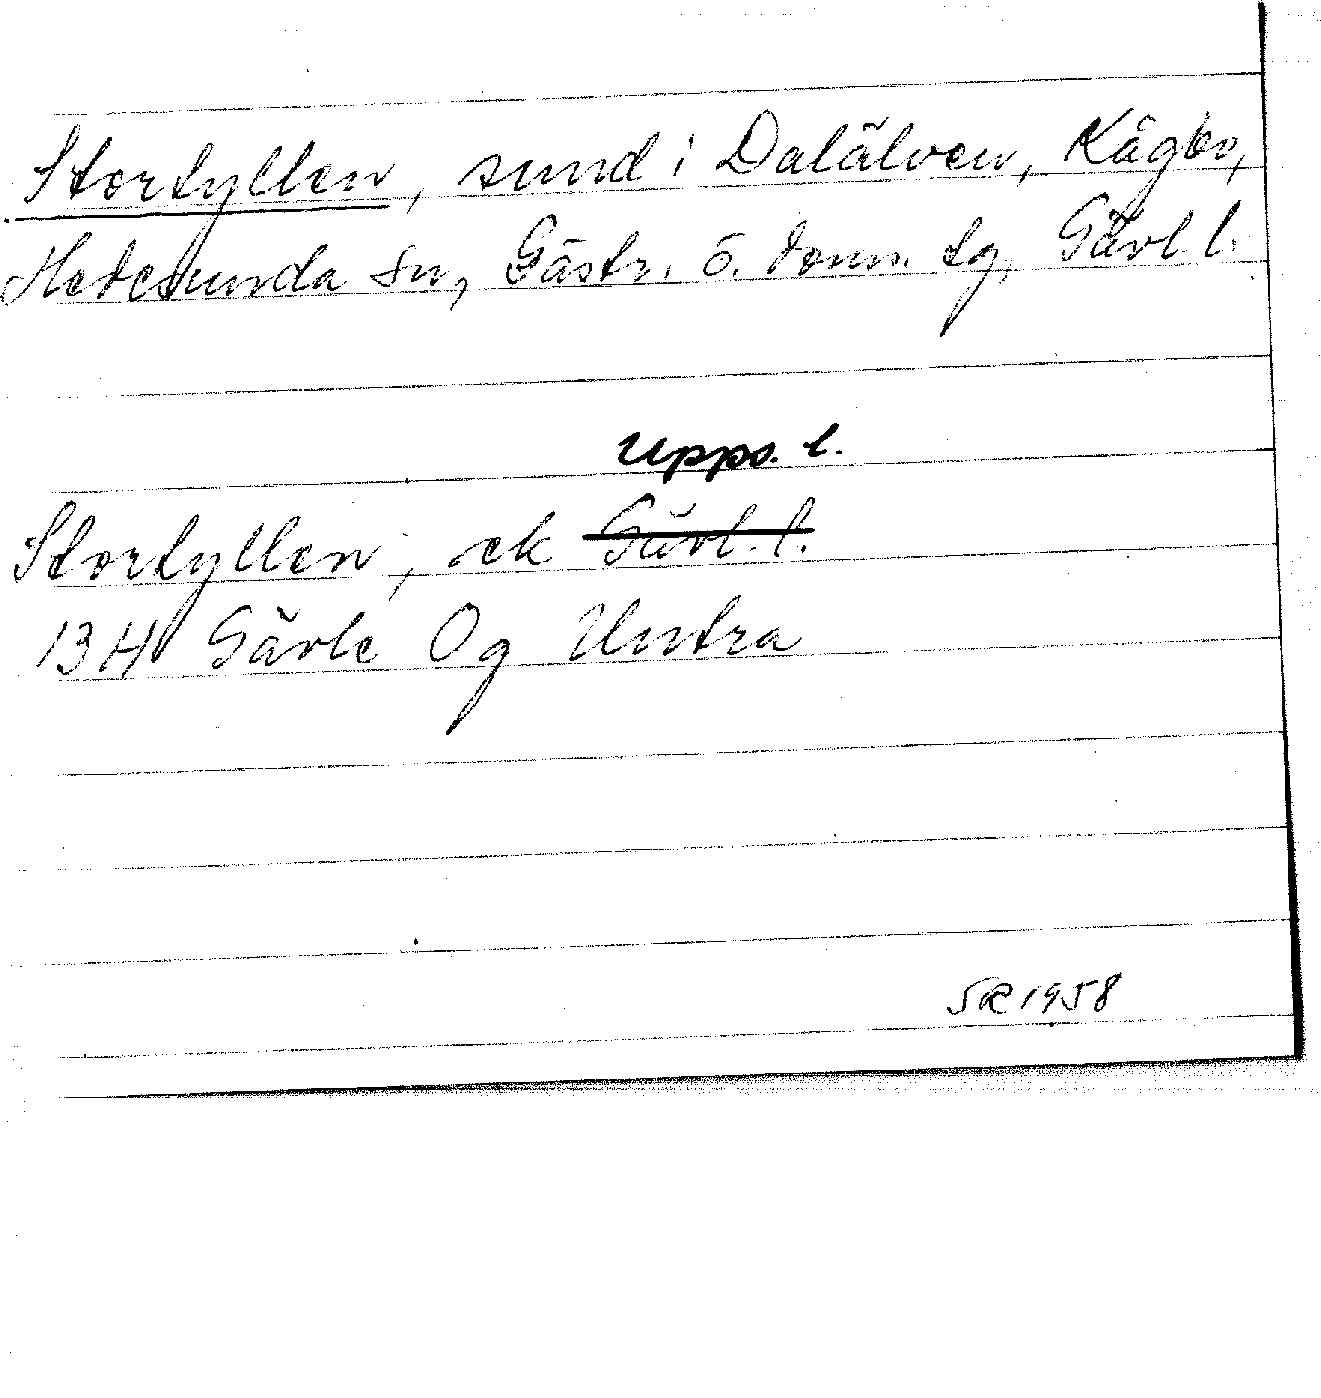 Stortyllen, sund i Dalälven, Kågbo,
Hedesunda sn, Gästr. ö. doms. tg, Gävl. l.
Upps. l.
Stortyllen, ek Gävl. l.
13 H Gävle Og Untra
SR 1958